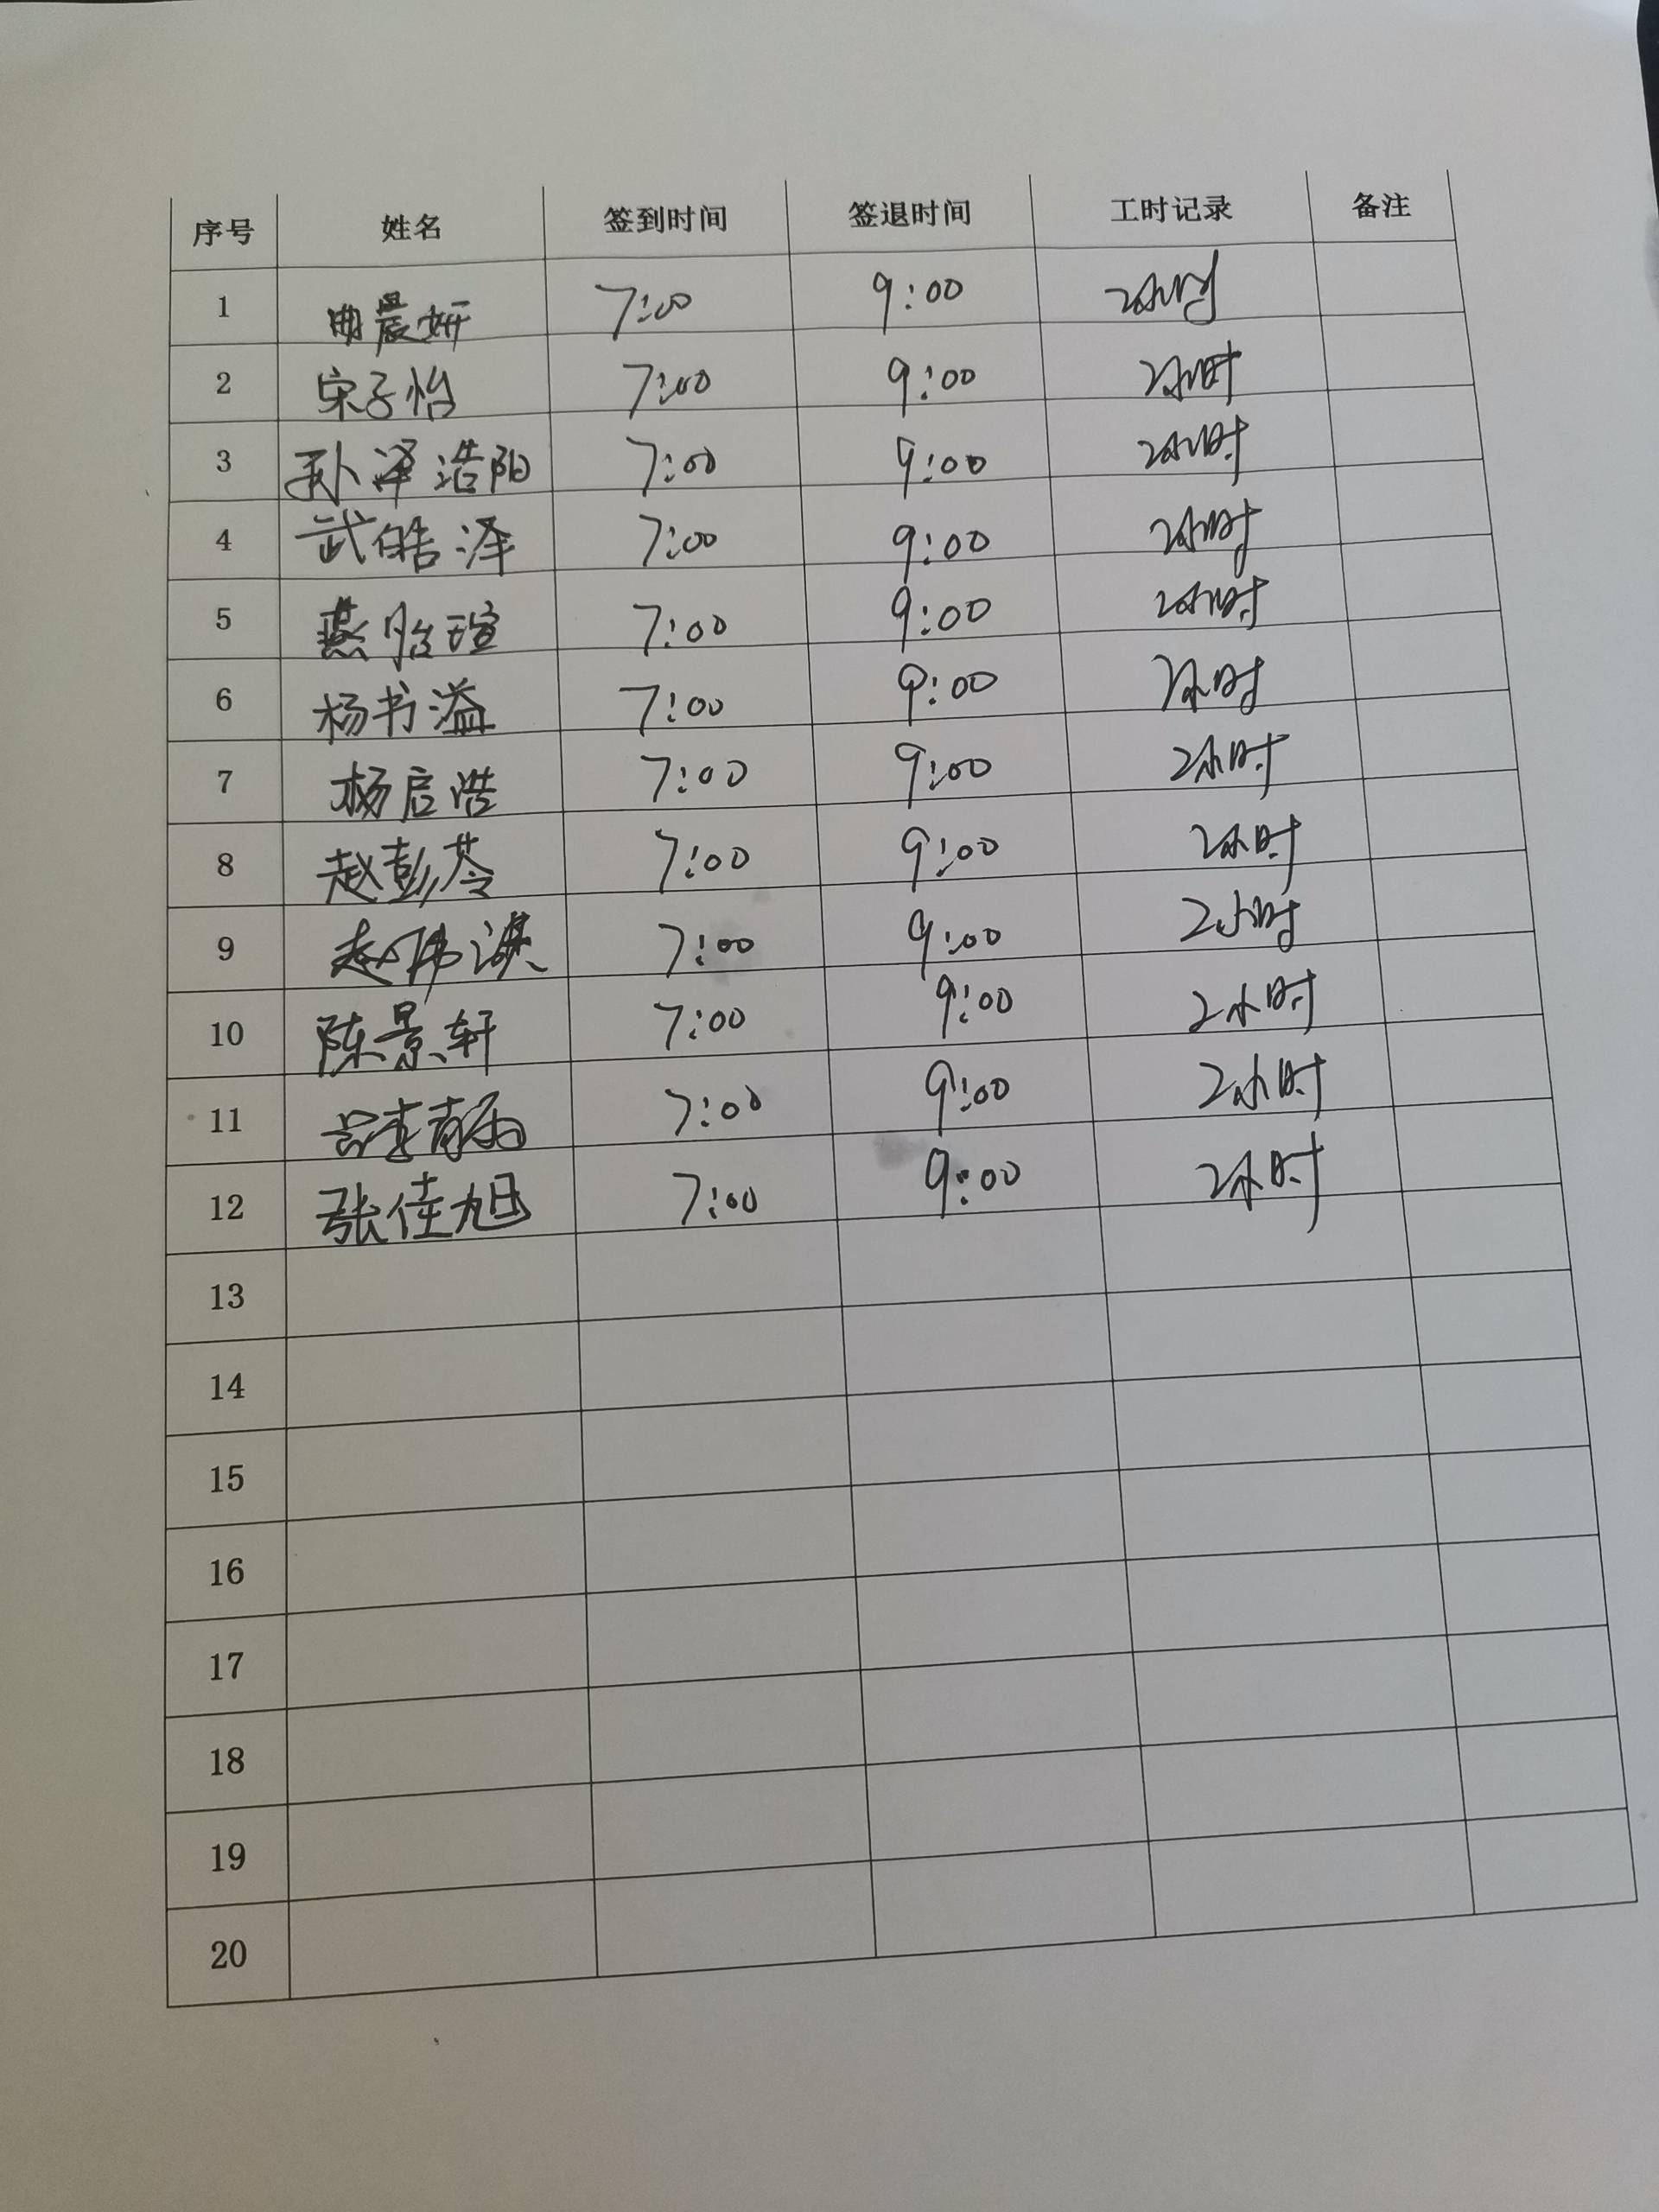 序号 姓名 签到时间 签退时间 工时记录 备注
1 曲晨妍 7:00 9:00 2小时
2 宋子怡 7:00 9:00 2小时
3 孙泽浩阳 7:00 9:00 2小时
4 武皓泽 7:00 9:00 2小时
5 燕 瑄 7:00 9:00 2小时
6 杨书溢 7:00 9:00 2小时
7 杨启浩 7:00 9:00 2小时
8 赵彭苓 7:00 9:00 2小时
9 赵 7:00 9:00 2小时
10 陈景轩 7:00 9:00 2小时
11 吕李青雨 7:00 9:00 2小时
12 张佳旭 7:00 9:00 2小时
13
14
15
16
17
18
19
20